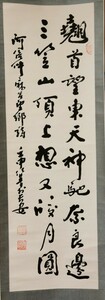 翹首望東天神馳奈良邊
三笠山頂上想又皎月圓
阿倍仲麻呂望鄉詩